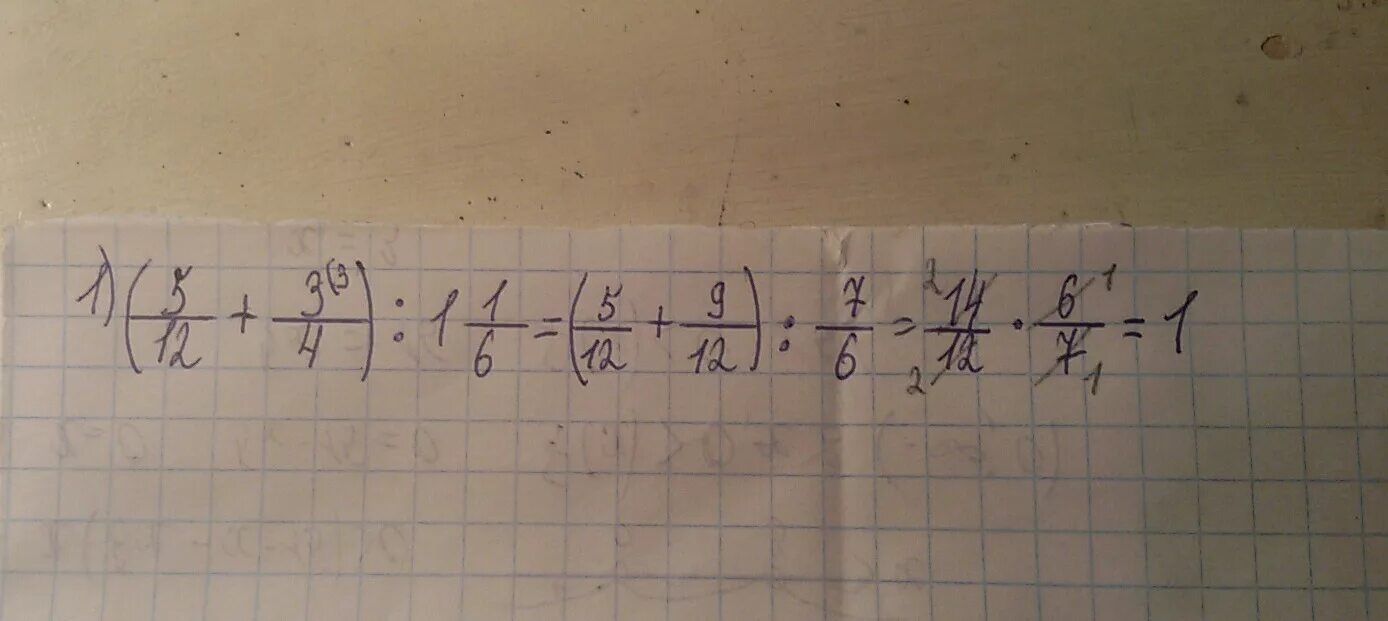 1) (5/12 + 3(3/4) : 1 1/6 = (5/12 + 9/12) : 7/6 = 2 14/12 2 · 6 1/7 1 = 1